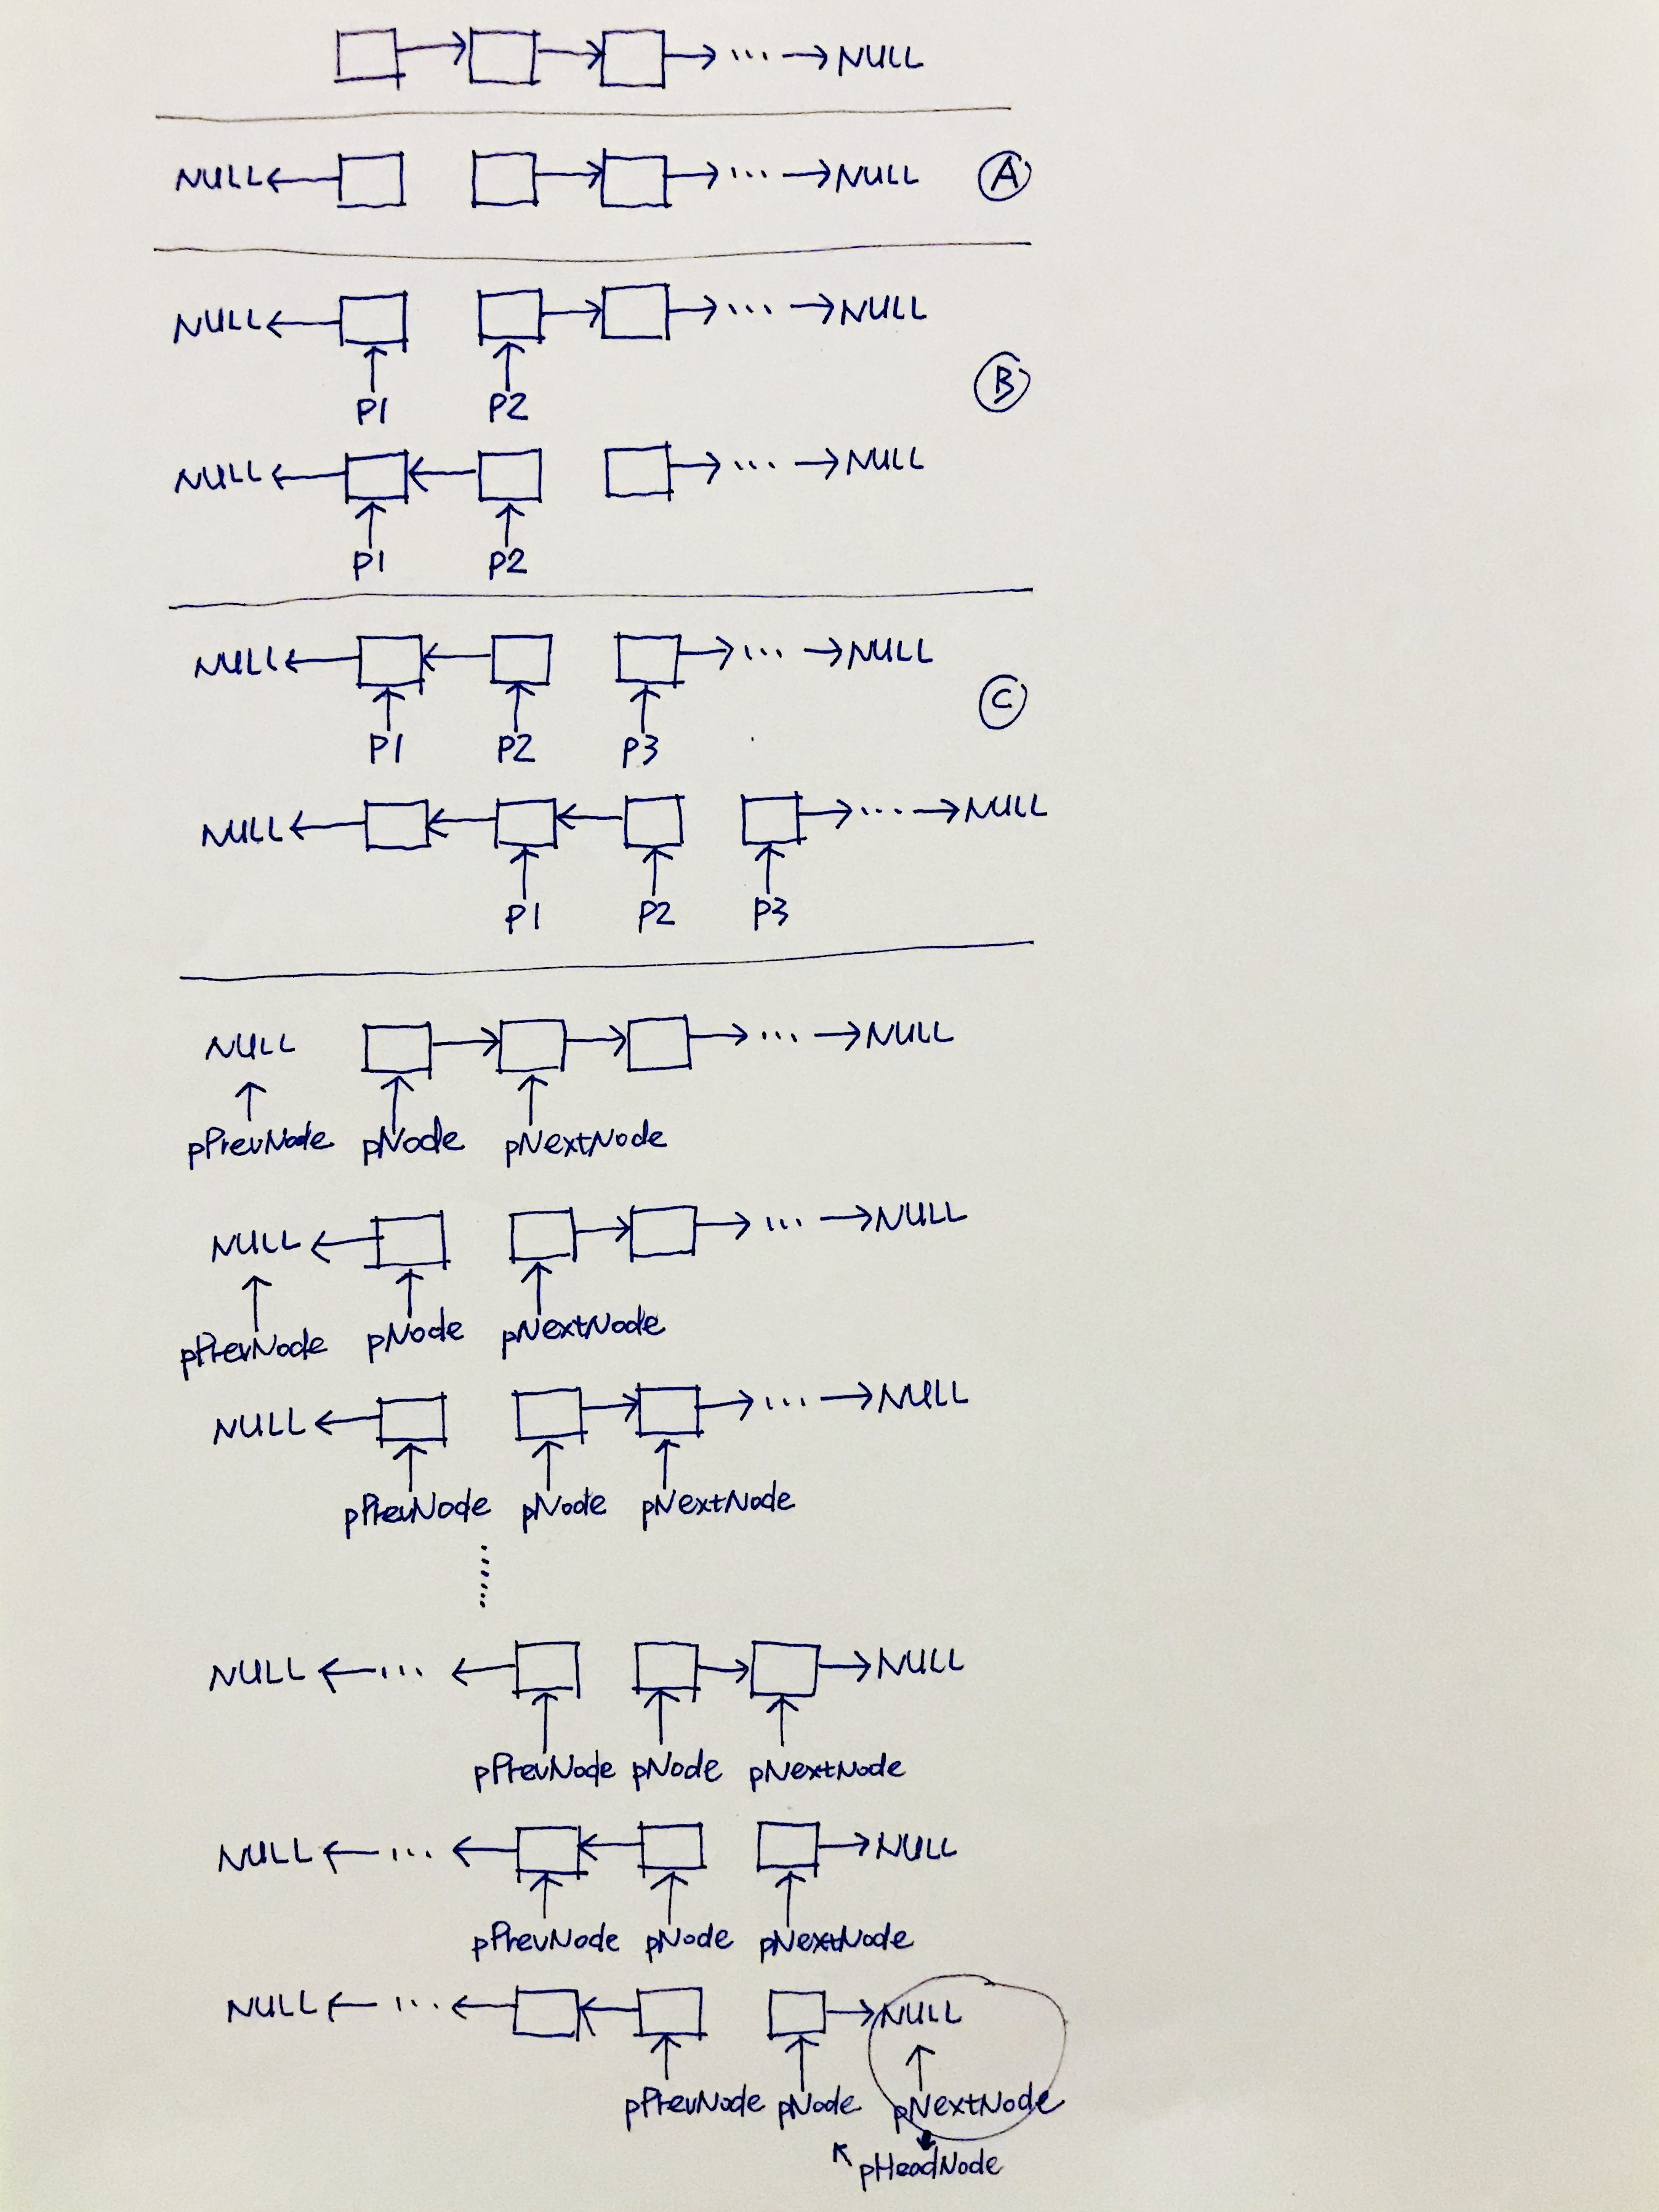 ... NULL
NULL ... NULL A
NULL ... NULL
B
P1 P2
NULL ... NULL
P1 P2
NULL ... NULL
C
P1 P2 P3
NULL ... NULL
P1 P2 P3
NULL ... NULL
pPrevNode pNode pNextNode
NULL ... NULL
pPrevNode pNode pNextNode
NULL ... NULL
pPrevNode pNode pNextNode
......
NULL ... NULL
pPrevNode pNode pNextNode
NULL ... NULL
pPrevNode pNode pNextNode
NULL ... NULL
pPrevNode pNode pNextNode
pHeadNode